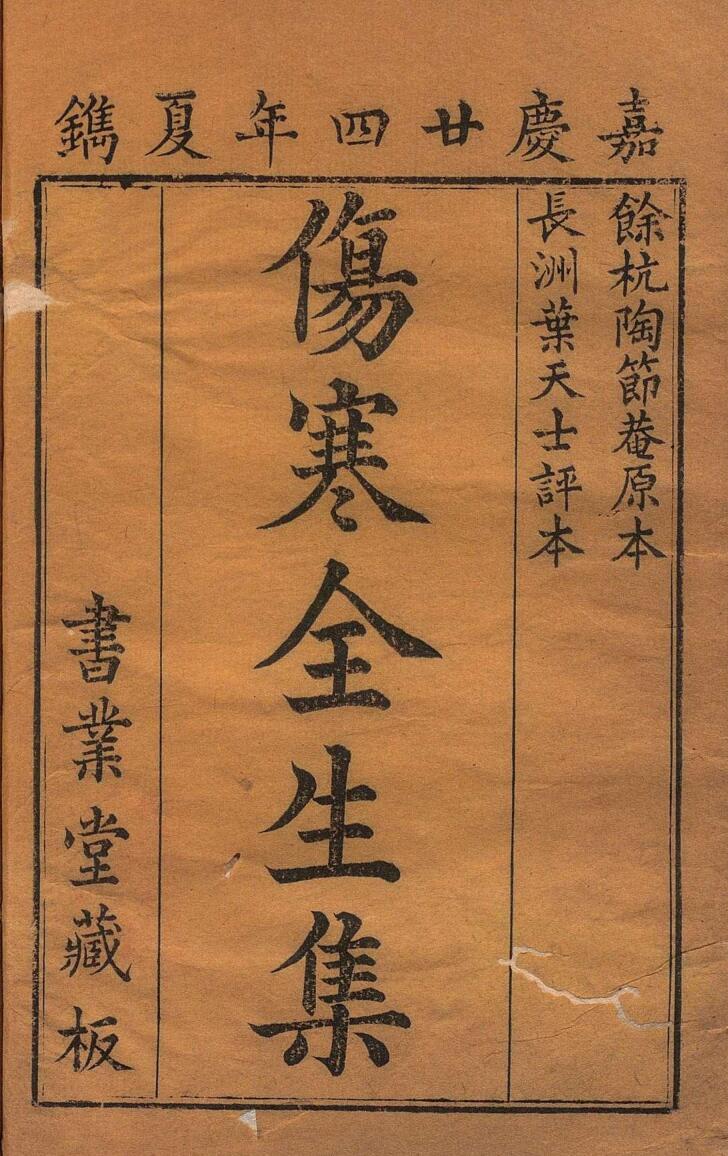 嘉慶廿四年夏鐫
餘杭陶節菴原本
長洲葉天士評本
傷寒全生集
書業堂藏板